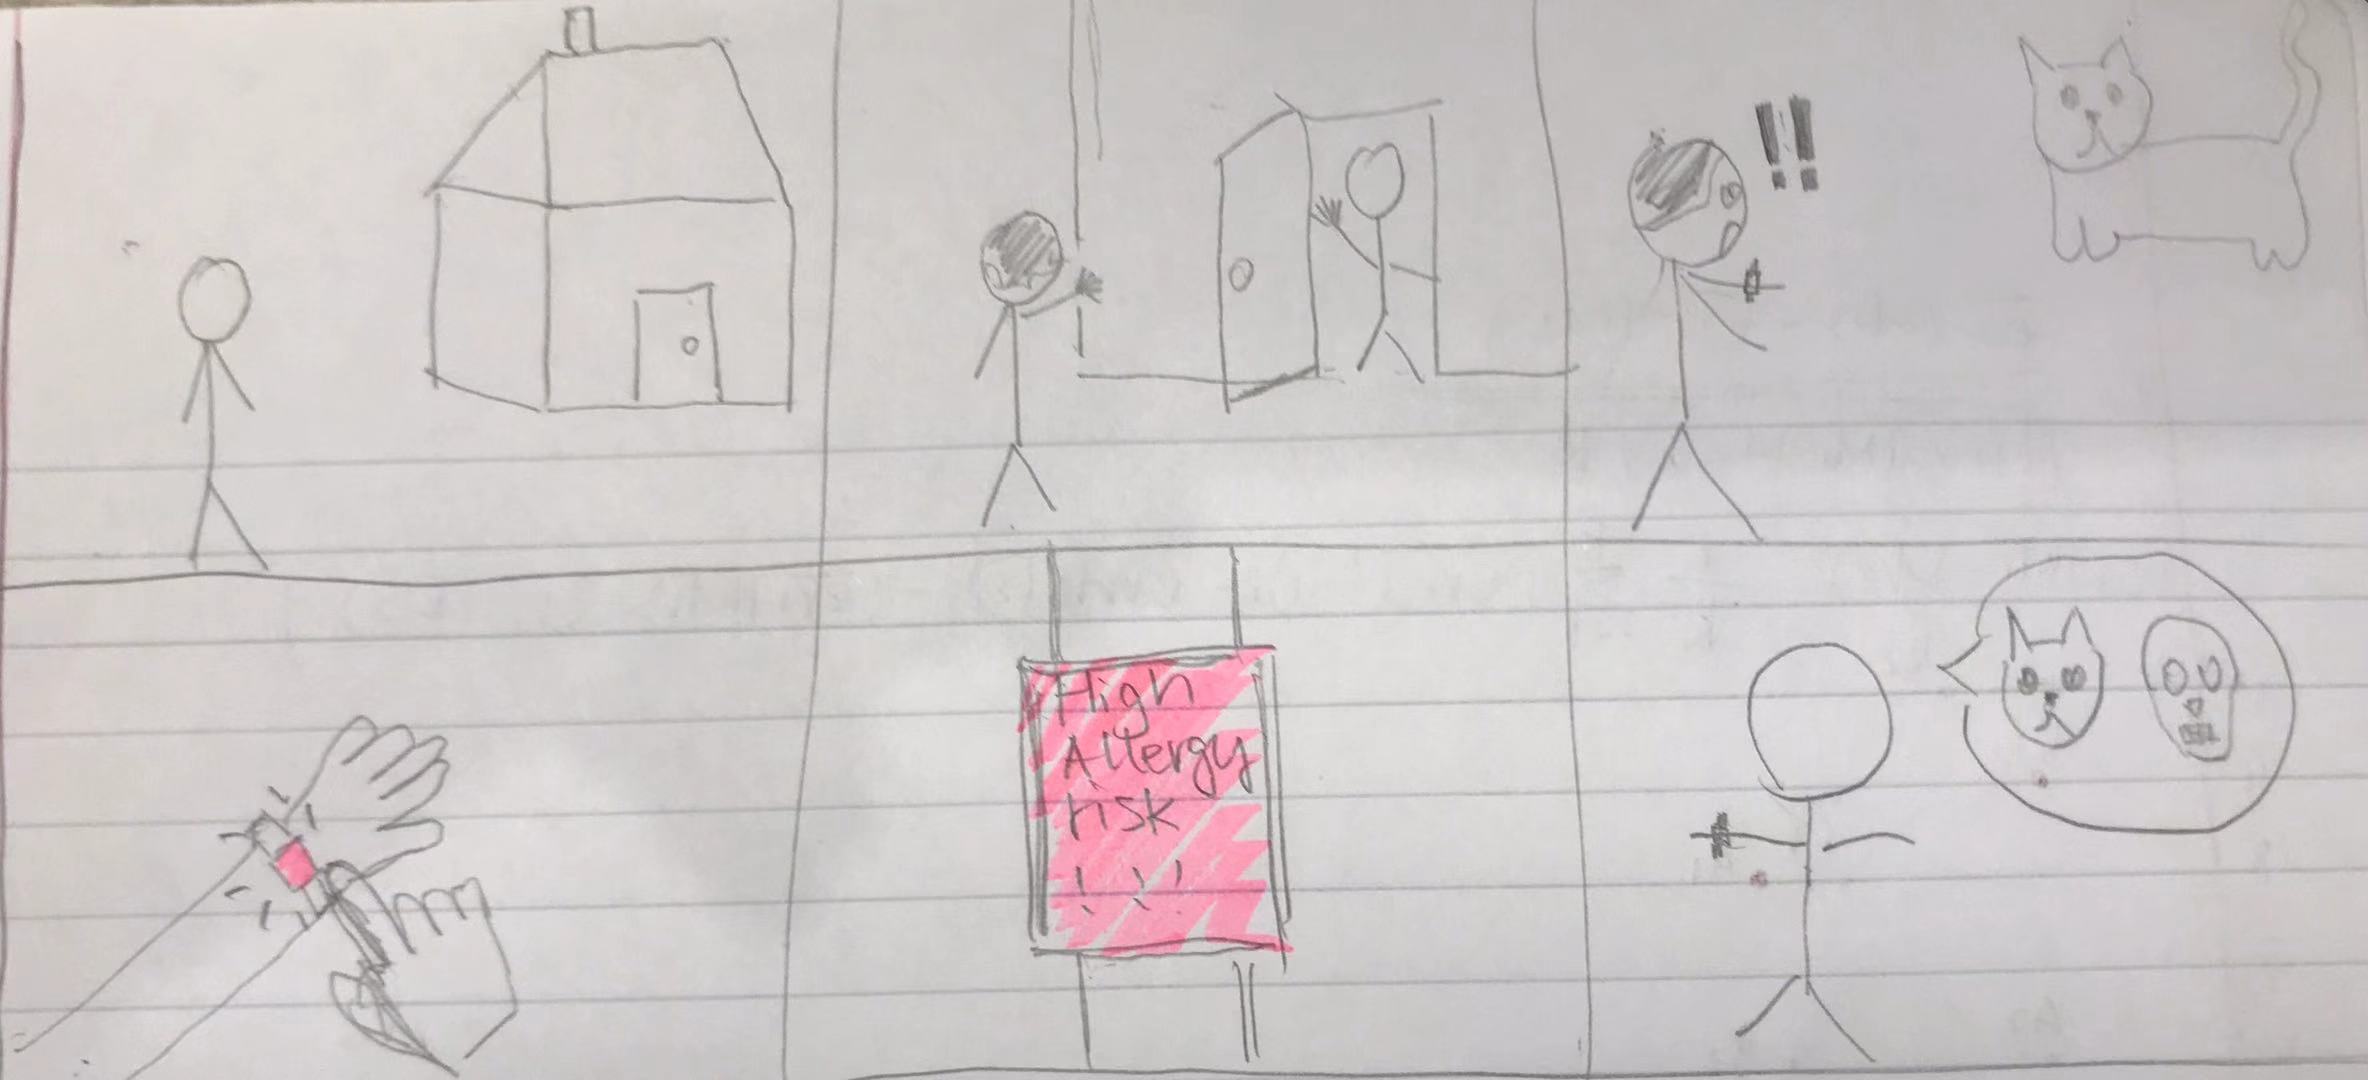 !!
High
Allergy
risk
!!!